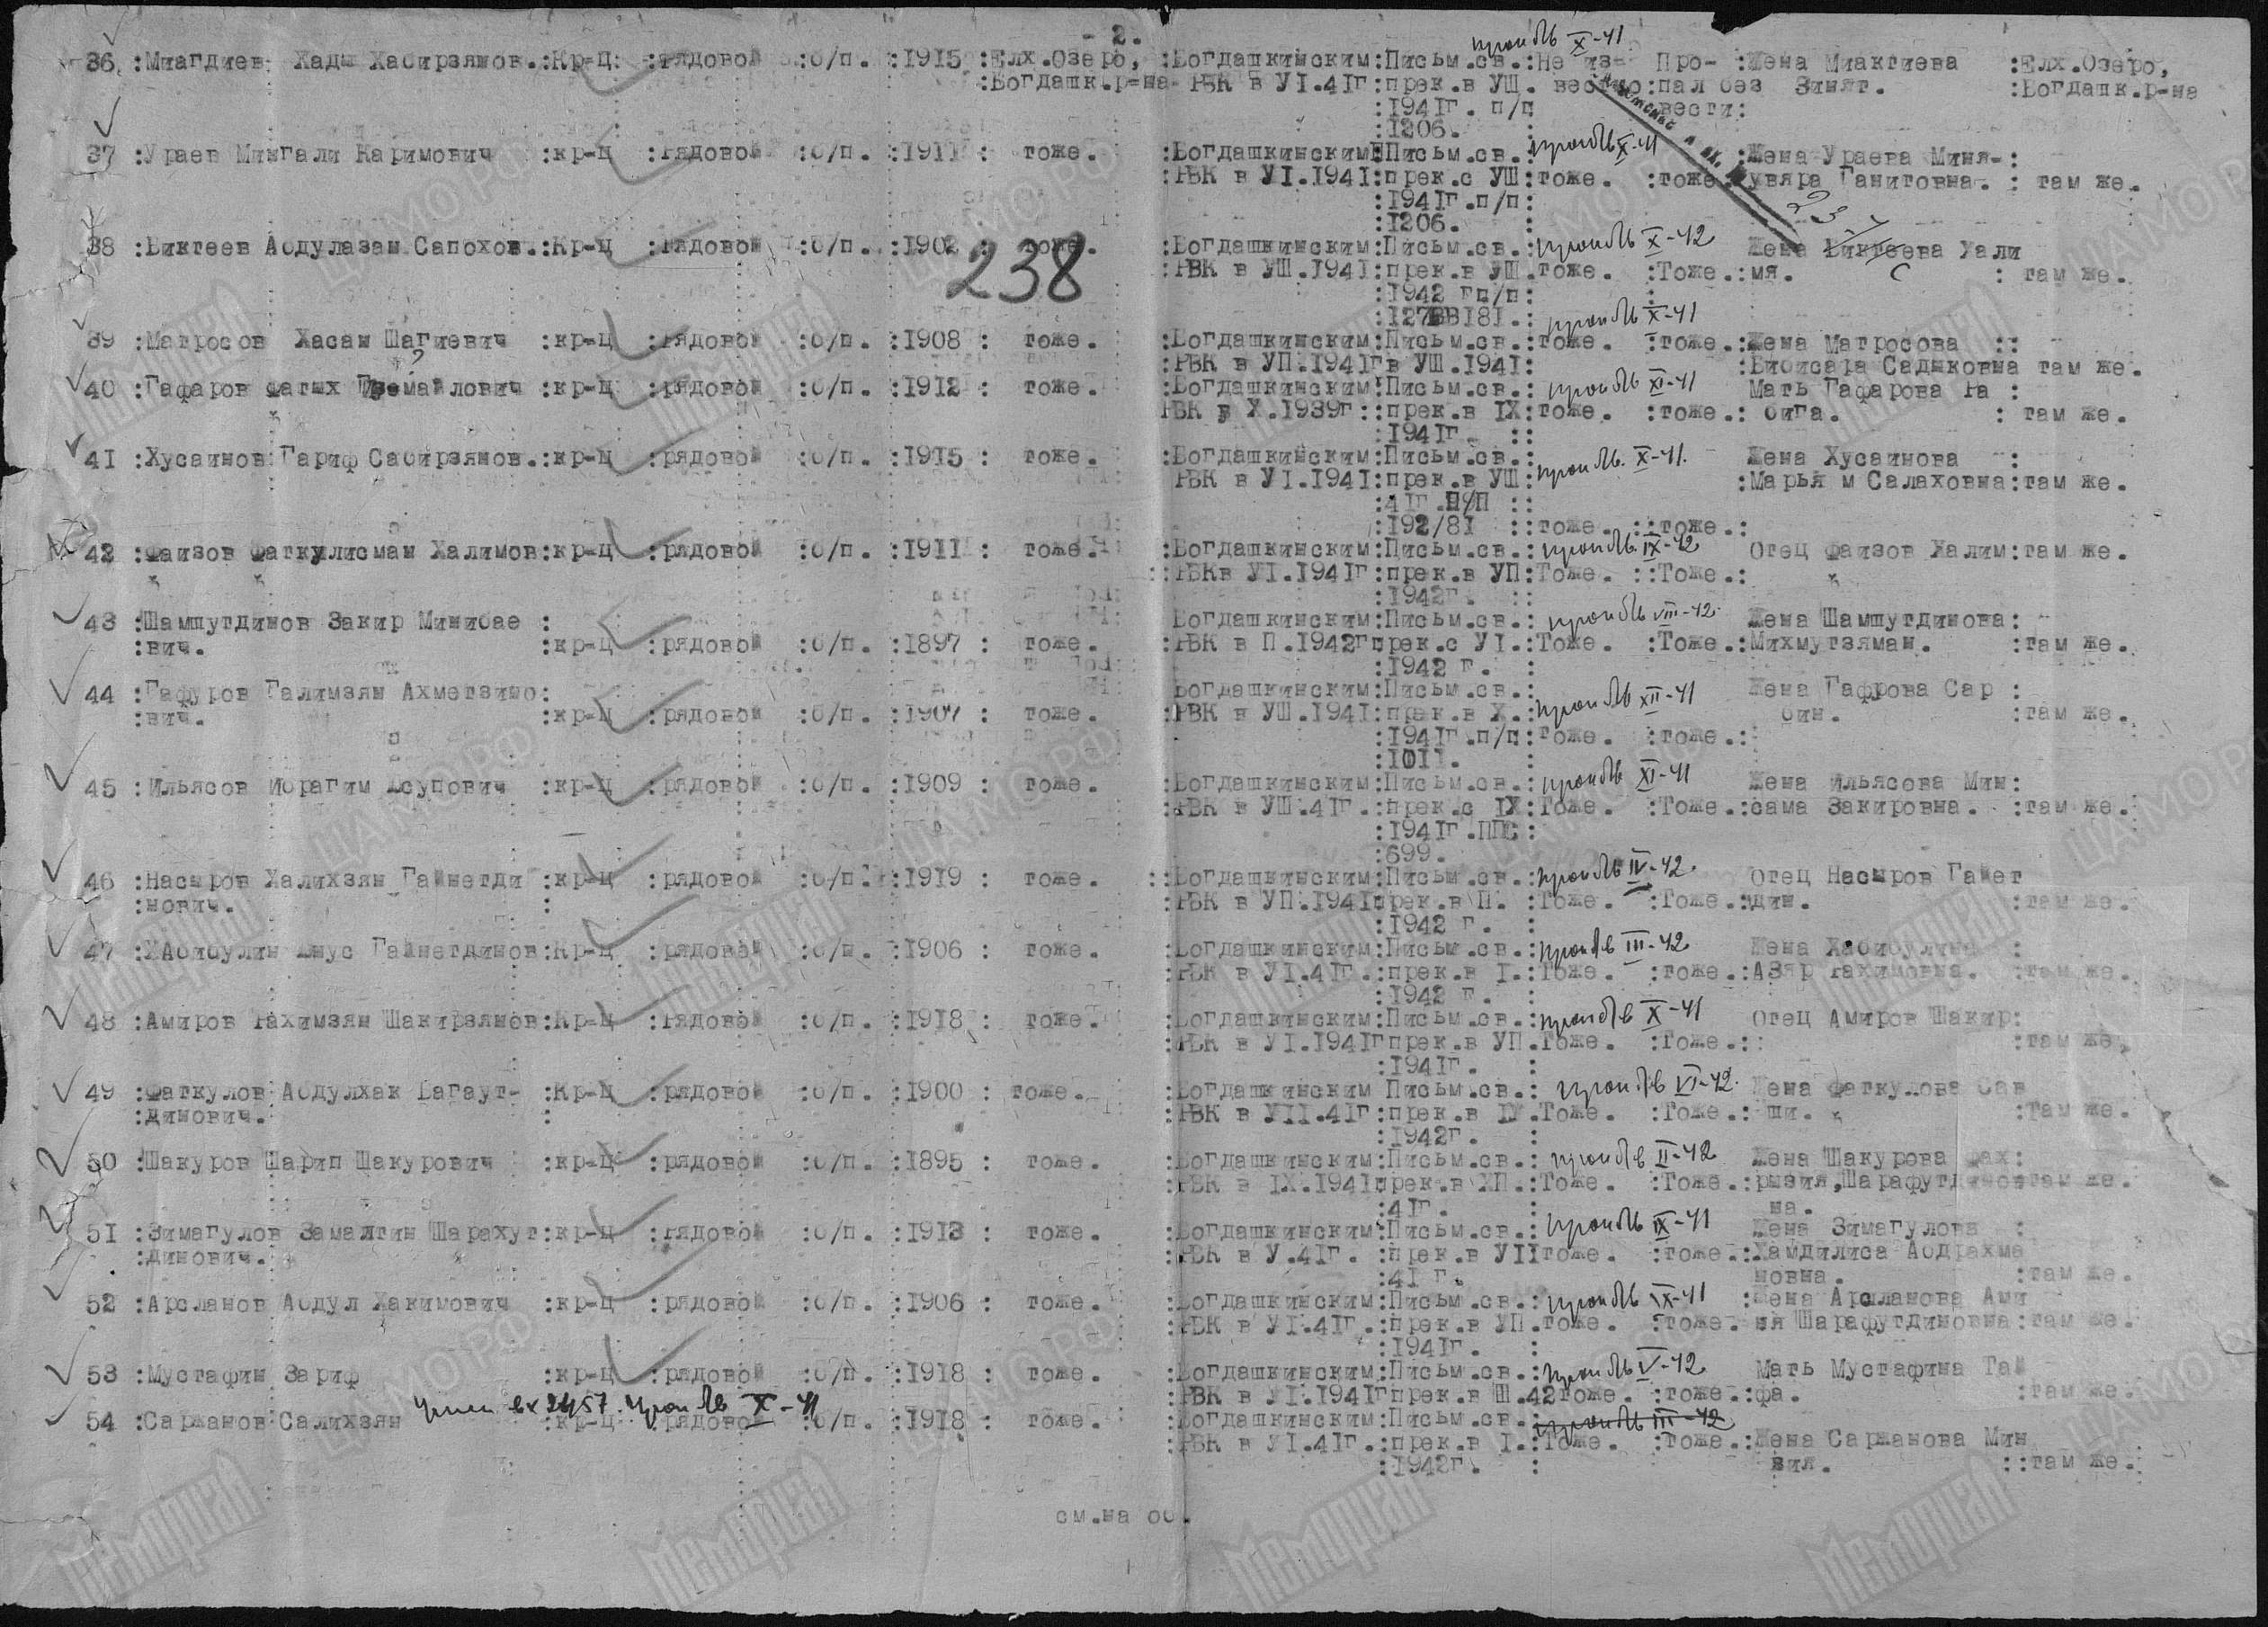 - 2.
36 :Миагдиев Хады Хабирзянов.:Кр-ц: :рядовой :б/п. :1915 :Елх.Озеро, :Богдашкинским:Письм.св.:Не из- Про- :Жена Миакгиева :Елх.Озеро,
пропбв X-41
:Богдашк.р-на РВК в УI.41г:прек.в УШ. вестно:пал без Зинят. :Богдашк.р-не
:1941г. п/п вести:
:1206.
37 :Ураев Мингали Каримович :кр-ц :рядовой :б/п. :1911 : тоже. :Богдашкинским:Письм.св.: пропбв X-41 :Жена Ураева Миня-:
:РВК в УI.1941:прек.с УШ:тоже. :тоже. увяра Ганитовна. : там же.
:1941г.п/п:
:1206.
38 :Биктеев Абдулазам Сапохов.:Кр-ц :рядовой :б/п. :1902 : тоже. :Богдашкинским:Письм.св.: пропбв X-42 Жена Биктеева Уали
238
:РВК в УШ.1941:прек.в УШ.тоже. :Тоже.:мя. : там же.
:1942 гп/п:
39 :Матросов Хасан Шагиевич :кр-ц :рядовой :б/п. :1908 : тоже. :Богдашкинским:Письм.св.:тоже. :тоже.:Жена Матросова ::
пропбв X-41
:РВК в УП.1941гв УШ.1941: :Бибисара Садыковна там же.
40 :Гафаров Фатых Исмаилович :кр-ц :рядовой :б/п. :1912 : тоже. :Богдашкинским:Письм.св.: пропбв XI-41 Мать Гафарова Ра :
РВК в X.1939г::прек.в IX:тоже. :тоже.: бига. : там же.
:1941г. ::
41 :Хусаинов Гариф Сабирзянов.:кр-ц :рядовой :б/п. :1915 : тоже. :Богдашкинским:Письм.св.: пропбв. X-41. Жена Хусаинова :
РВК в УI.1941:прек.в УШ: :Марья м Салаховна:там же.
:41г.П/П ::
:192/81 ::тоже. ::тоже.:
42 :Фаизов Фаткулисман Халимов:кр-ц :рядовой :б/п. :1911 : тоже. :Богдашкинским:Письм.св.: пропбв. IX-42 Отец Фаизов Халим:там же.
:РВКв УI.1941г:прек.в УП:Тоже. ::Тоже.:
:1942г. ::
43 :Шампутдинов Закир Минибае : Богдашкинским:Письм.св.: пропбв VIII-42. Жена Шампутдинова:
:вич. :кр-ц :рядовой :б/п. :1897 : тоже. :РВК в П.1942гпрек.с УI.:Тоже. :Тоже.:Михмутзяман. :там же.
:1942 г. :
44 :Гафуров Галимзян Ахметзино: Богдашкинским:Письм.св.: пропбв XII-41 Жена Гафрова Сар :
:вич. :кр-ц :рядовой :б/п. :1907 : тоже. :РВК в УШ.1941:прек.в X.: бин. :там же.
:1941г.п/п:тоже. :тоже.:
:1011. :
45 :Ильясов Ибрагим Юсупович :кр-ц :рядовой :б/п. :1909 : тоже. :Богдашкинским:Письм.св.: пропбв XI-41 Жена Ильясова Мин:
:РВК в УШ.41г.:прек.с IX:Тоже. :Тоже.:сама Закировна. :там же.
:1941г.ППС:
:699.
46 :Насыров Халихзян Гайнетди :кр-ц :рядовой :б/п. :1919 : тоже. ::Богдашкинским:Письм.св.:пропбв IV-42. Отец Насыров Гайет
:нович. : :РВК в УП.1941прек.в П. :Тоже. :Тоже.:дин. :там же.
:1942 г. :
47 :ХАбибулин Юнус Гайнетдинов:Кр-ц :рядовой :б/п. :1906 : тоже. :Богдашкинским:Письм.св.:пропбв III-42 Жена Хабибулина :
:РВК в УI.41г.:прек.в I.:Тоже. :тоже.:АЗяр Рахимовна. :там же.
:1942 г. :
48 :Амиров Рахимзян Шакирзянов:Кр-ц :Рядовой :б/п. :1918 : тоже. :Богдашкинским:Письм.св.:пропбв X-41 Отец Амиров Шакир:
:РВК в УI.1941гпрек.в УП.Тоже. :Тоже.:: :там же.
:1941г. :
49 :Фаткулов Абдулхак Багаут- :Кр-ц :рядовой :б/п. :1900 : тоже. :Богдашкинским Письм.св.: пропбв VI-42. Жена Фаткулова Сав
:динович. : :РВК в УII.41г:прек.в IУ.Тоже. :Тоже.: ши. :там же.
:1942г. :
50 :Шакуров Шарип Шакурович :кр-ц :рядовой :б/п. :1895 : тоже. :Богдашкинским:Письм.св.: пропбв II-42 Жена Шакурова Фах:
:РВК в IX.1941прек.в ХП.:Тоже. :Тоже.:рызия,Шарафутдинов:там же.
:41г. : на.
51 :Зимагулов Замалтин Шарахут:кр-ц :рядовой :б/п. :1913 : тоже. :Богдашкинским:Письм.св.: пропбв IX-41 Жена Зимагулова :
:динович. :РВК в У.41г. :прек.в УIIтоже. :тоже.:Хамдилиса Абдрахме
:41 г. новна. :там же.
52 :Арсланов Абдул Хакимович :кр-ц :рядовой :б/п. :1906 : тоже. :Богдашкинским:Письм.св.: пропбв IX-41 :Жена Арсланова Ами
:РВК в УI.41г.:прек.в УП.тоже. :тоже. ня Шарафутдиновна:там же.
:1941г. :
53 :Мустафин Зариф :кр-ц :рядовой :б/п. :1918 : тоже. :Богдашкинским:Письм.св.:пропбв V-42 Мать Мустафина Гай
:РВК в УI.1941гпрек.в Ш.42тоже. :тоже.:фа. :там же.
54 :Саржанов Салихзян :кр-ц :рядовой :б/п. :1918 : тоже. :Богдашкинским:Письм.св.:пропбв III-42
вх 2457 пропбв X-41
:РВК в УI.41г.:прек.в I.:Тоже. :тоже.:Жена Саржанова Мин
:1942г. : вия. ::там же.
см.на об.